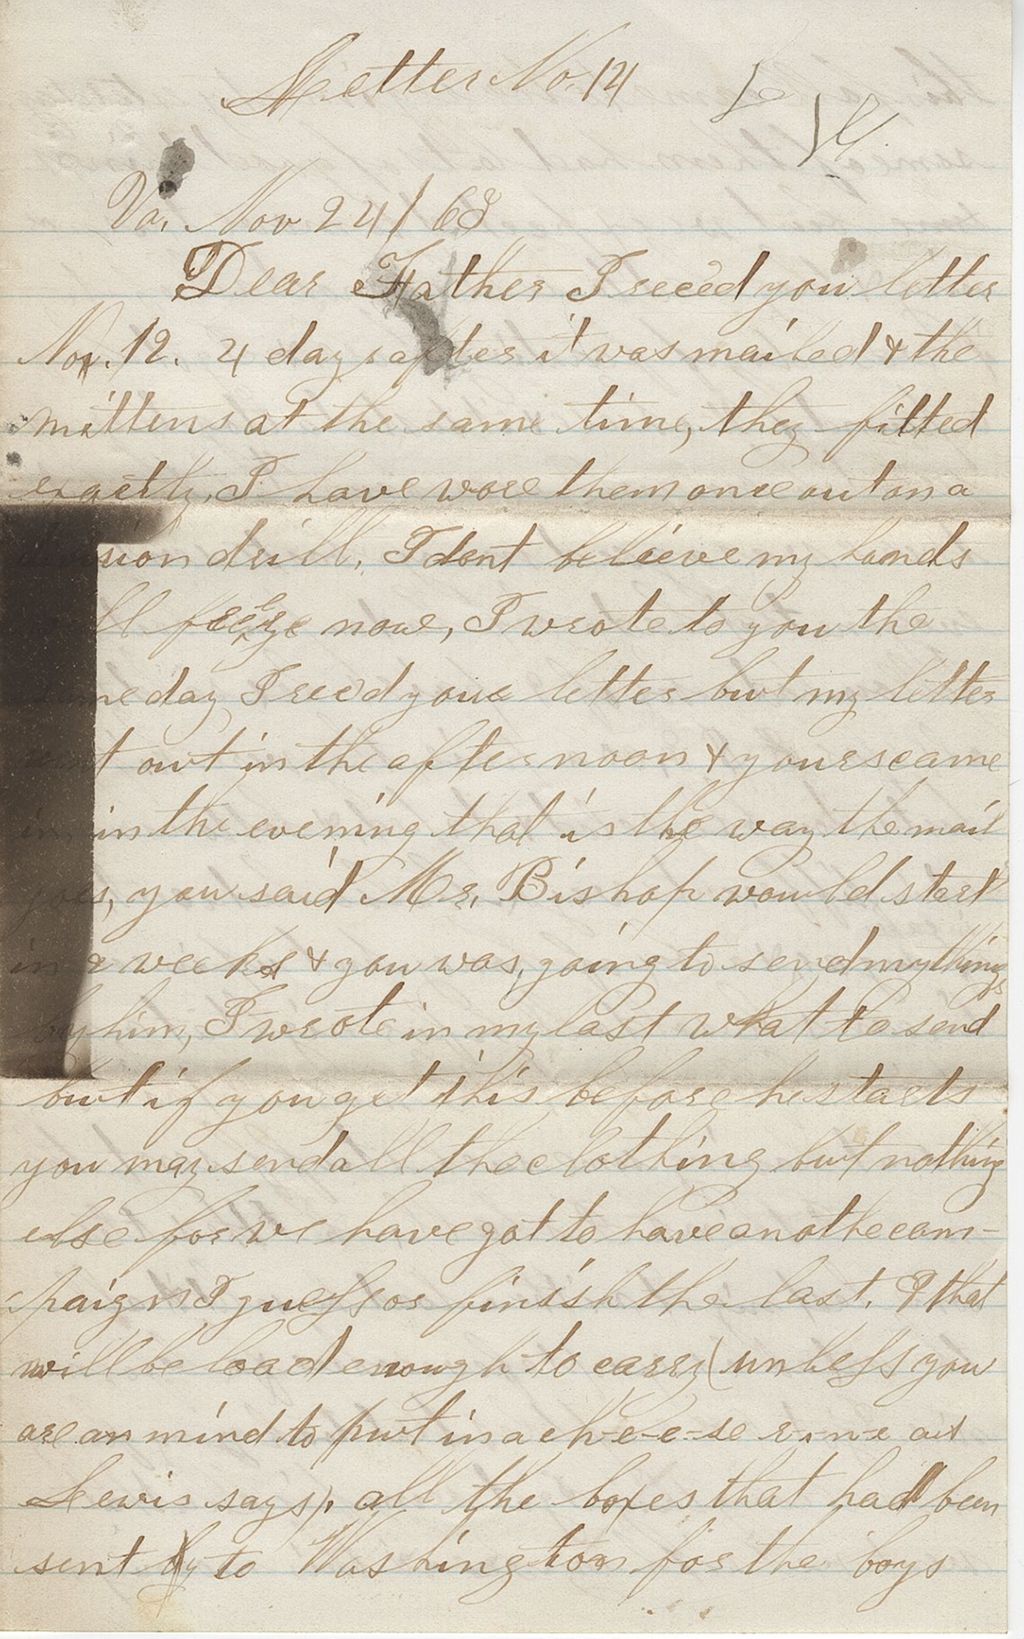 Letter No. 14
Va. Nov 24/63
Dear Father I reced you letter
No. 12. 4 days after it was mailed & the
mittens at the same time, they fitted
exactly, I have wore them once out on a
sion drill, I dont believe my hands
ll freeze now, I wrote to you the
me day I recd your letter but my letter
t out in the afternoon & yours came
in the evening that is the way the mail
goes, you said Mr. Bishop would start
in 2 weeks & you was, going to send my things
by him, I wrote in my last what to send
but if you get this before he starts
you may send all the clothing but nothing
else for we have got to have anothe cam-
paign I guess or finish the last. & that
will be load enough to carry (unless you
are a mind to put in a ch-e-e-se r-n-e as
Lewis says). all the boxes that had been
sent to Washington for the boys